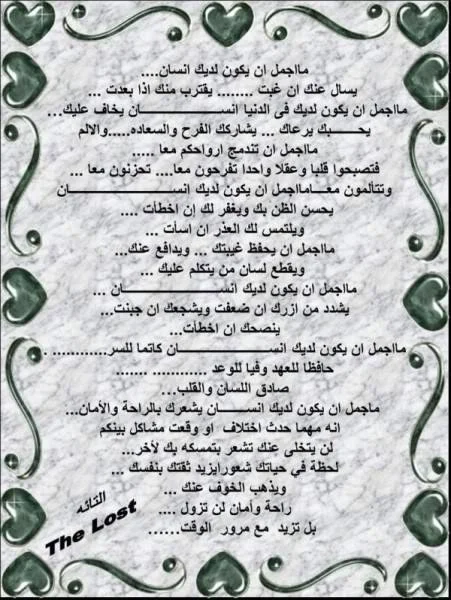 مااجمل ان يكون لديك انسان....
يسال عنك ان غبت ........ يقترب منك اذا بعدت ...
مااجمل ان يكون لديك فى الدنيا انســـــــــــان يخاف عليك...
يحـــــبك يرعاك ... يشاركك الفرح والسعاده.....والالم
مااجمل ان تندمج ارواحكم معا .....
فتصبحوا قلبا وعقلا واحدا تفرحون معا.... تحزنون معا ...
وتتألمون معــــامااجمل ان يكون لديك انســـــــــــــــــان
يحسن الظن بك ويغفر لك إن اخطأت ....
ويلتمس لك العذر ان اسأت ...
مااجمل ان يحفظ غيبتك ... ويدافع عنك...
ويقطع لسان من يتكلم عليك ...
مااجمل ان يكون لديك انســـــــــــــــان ...
يشدد من ازرك ان ضعفت ويشجعك ان جبنت...
ينصحك ان اخطأت...
مااجمل ان يكون لديك انســـــــــــــــان كاتما للسر............ .
حافظا للعهد وفيا للوعد ............ .......
صادق اللسان والقلب...
ماجمل ان يكون لديك انســـــان يشعرك بالراحة والأمان...
انه مهما حدث اختلاف او وقعت مشاكل بينكم
لن يتخلى عنك تشعر بتمسكه بك لأخر...
لحظة في حياتك شعورايزيد ثقتك بنفسك ...
ويذهب الخوف عنك ...
راحة وأمان لن تزول ....
بل تزيد مع مرور الوقت......
التائه
The Lost